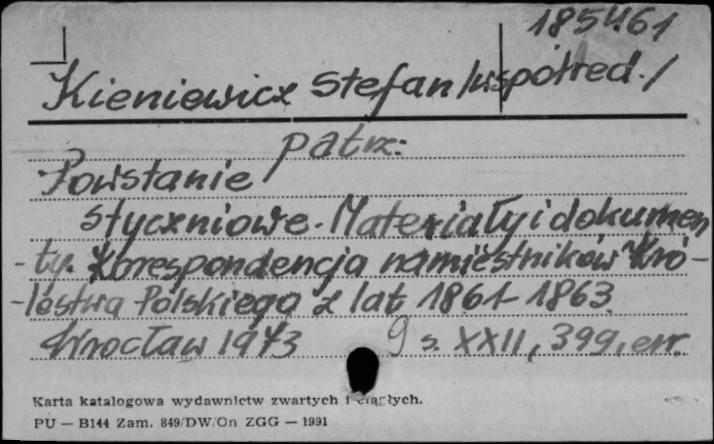 185461
Kieniewicz Stefan /współred./
patrz:
Powstanie
styczniowe. Materiały i dokumen
- ty. Korespondencja namiestników Kró -
- lestwa Polskiego z lat 1861-1863
Wrocław 1973 9 s. XXII, 399, err.
Karta katalogowa wydawnictw zwartych i ciągłych.
PU — B144 Zam. 849/DW/On ZGG — 1991